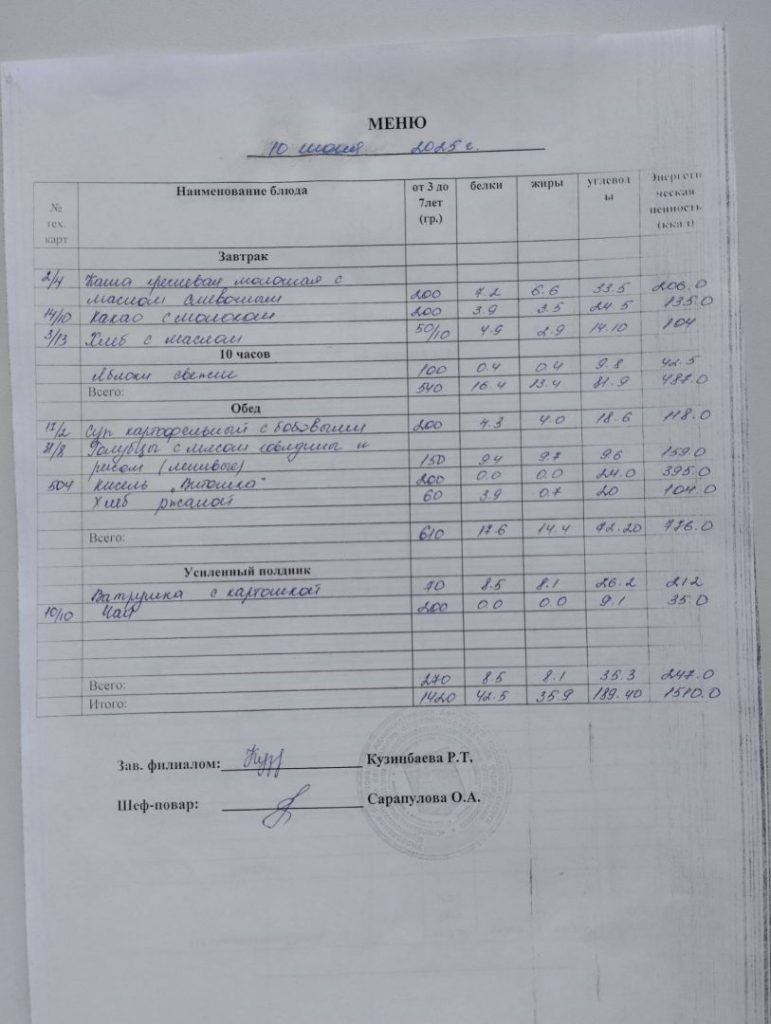 МЕНЮ
10 июня 2025 г.
№ тех. карт Наименование блюда от 3 до 7лет (гр.) белки жиры углеводы Энергетическая ценность (ккал)
Завтрак
2/4 Каша гречневая молочная с
маслом сливочным 200 7.2 6.6 33.5 206.0
14/10 Какао с молоком 200 3.9 3.5 24.5 135.0
3/13 Хлеб с маслом 50/10 4.9 2.9 14.10 104
10 часов
Яблоки свежие 100 0.4 0.4 9.8 42.5
Всего: 540 16.4 13.4 81.9 487.0
Обед
17/2 Суп картофельный с бобовыми 200 4.3 4.0 18.6 118.0
Голубцы с мясом говядины и
рисом (ленивые) 150 9.4 9.7 9.6 159.0
504 Кисель „Витошка" 200 0.0 0.0 24.0 395.0
Хлеб ржаной 60 3.9 0.7 20 104.0
Всего: 610 17.6 14.4 72.20 776.0
Усиленный полдник
Ватрушка с картошкой 70 8.5 8.1 26.2 212
10/10 Чай 200 0.0 0.0 9.1 35.0
Всего: 270 8.5 8.1 35.3 247.0
Итого: 1420 42.5 35.9 189.40 1510.0
Зав. филиалом: Кузинбаева Р.Т.
Шеф-повар: Сарапулова О.А.